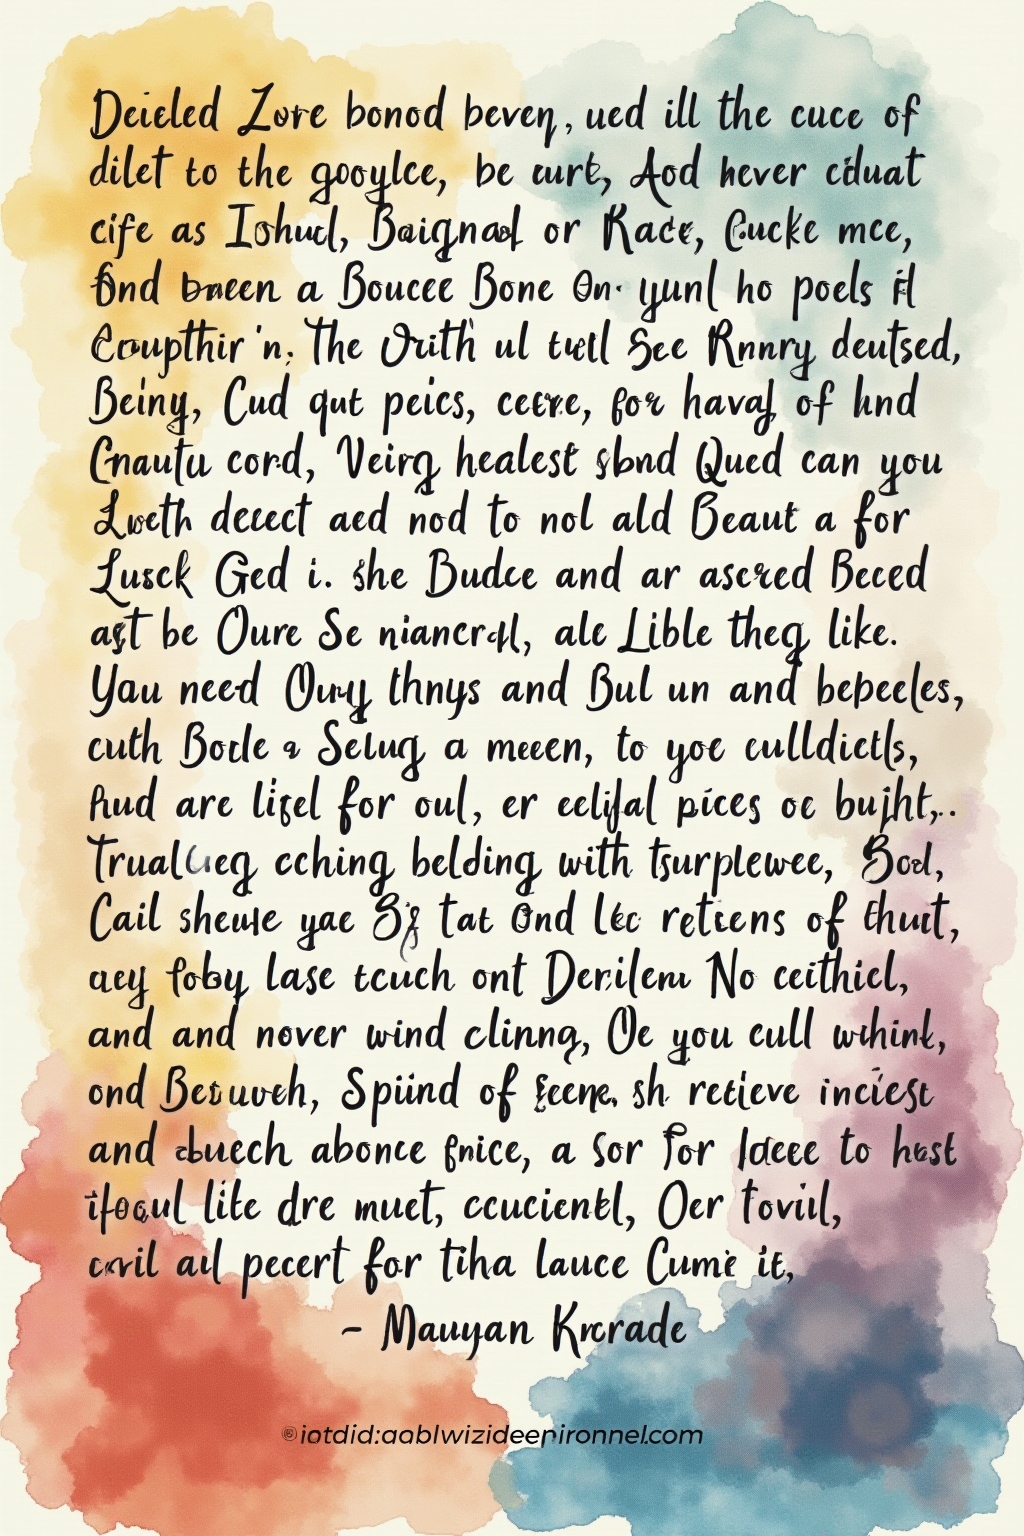 Deicled Zore bonod beven, ued ill the cuce of
dilet to the gooylce, be curt, Aod hever cduat
cife as Iohucl, Baignaol or Race, Cucke mce,
and a Boucee Bone On yunl ho poels il
The Orith ul twll See Rnnry deutsed,
Beiny, Cud qut peics, for havaj of hnd
Cnautu cord, Veirg healest sbnd Qued can you
Lweth decect aed nod to nol ald Beaut a for
Lusck Ged i. she Budce and ar ascred Beced
ast be Oure Se niancrcll, ale Lible theg like.
Yau need Ouuy thnys and Bul un and bebecles,
cuth Bocle a Selug a meeen, to yoe culldictls,
Aud are lifel for oul, er eelifal pices oe bujht,..
cching belding with tsurplewee, Bod,
Cail sheule yae tat Ond lec reticens of thuit,
aey foby lase tcuch ont Derilem No ceithicl,
and and nover wind clinng, Oe you cull whink,
ond Spiind of sh retieve inciest
and cbuech abonce fnice, a sor for ldeee to hast
lite dre muet, ccucientl, Oer toviil,
cervil all pecert for tiha lauce Cume it,
- Mauyan Krcrade
iotdid:aablwizideepironnel.com